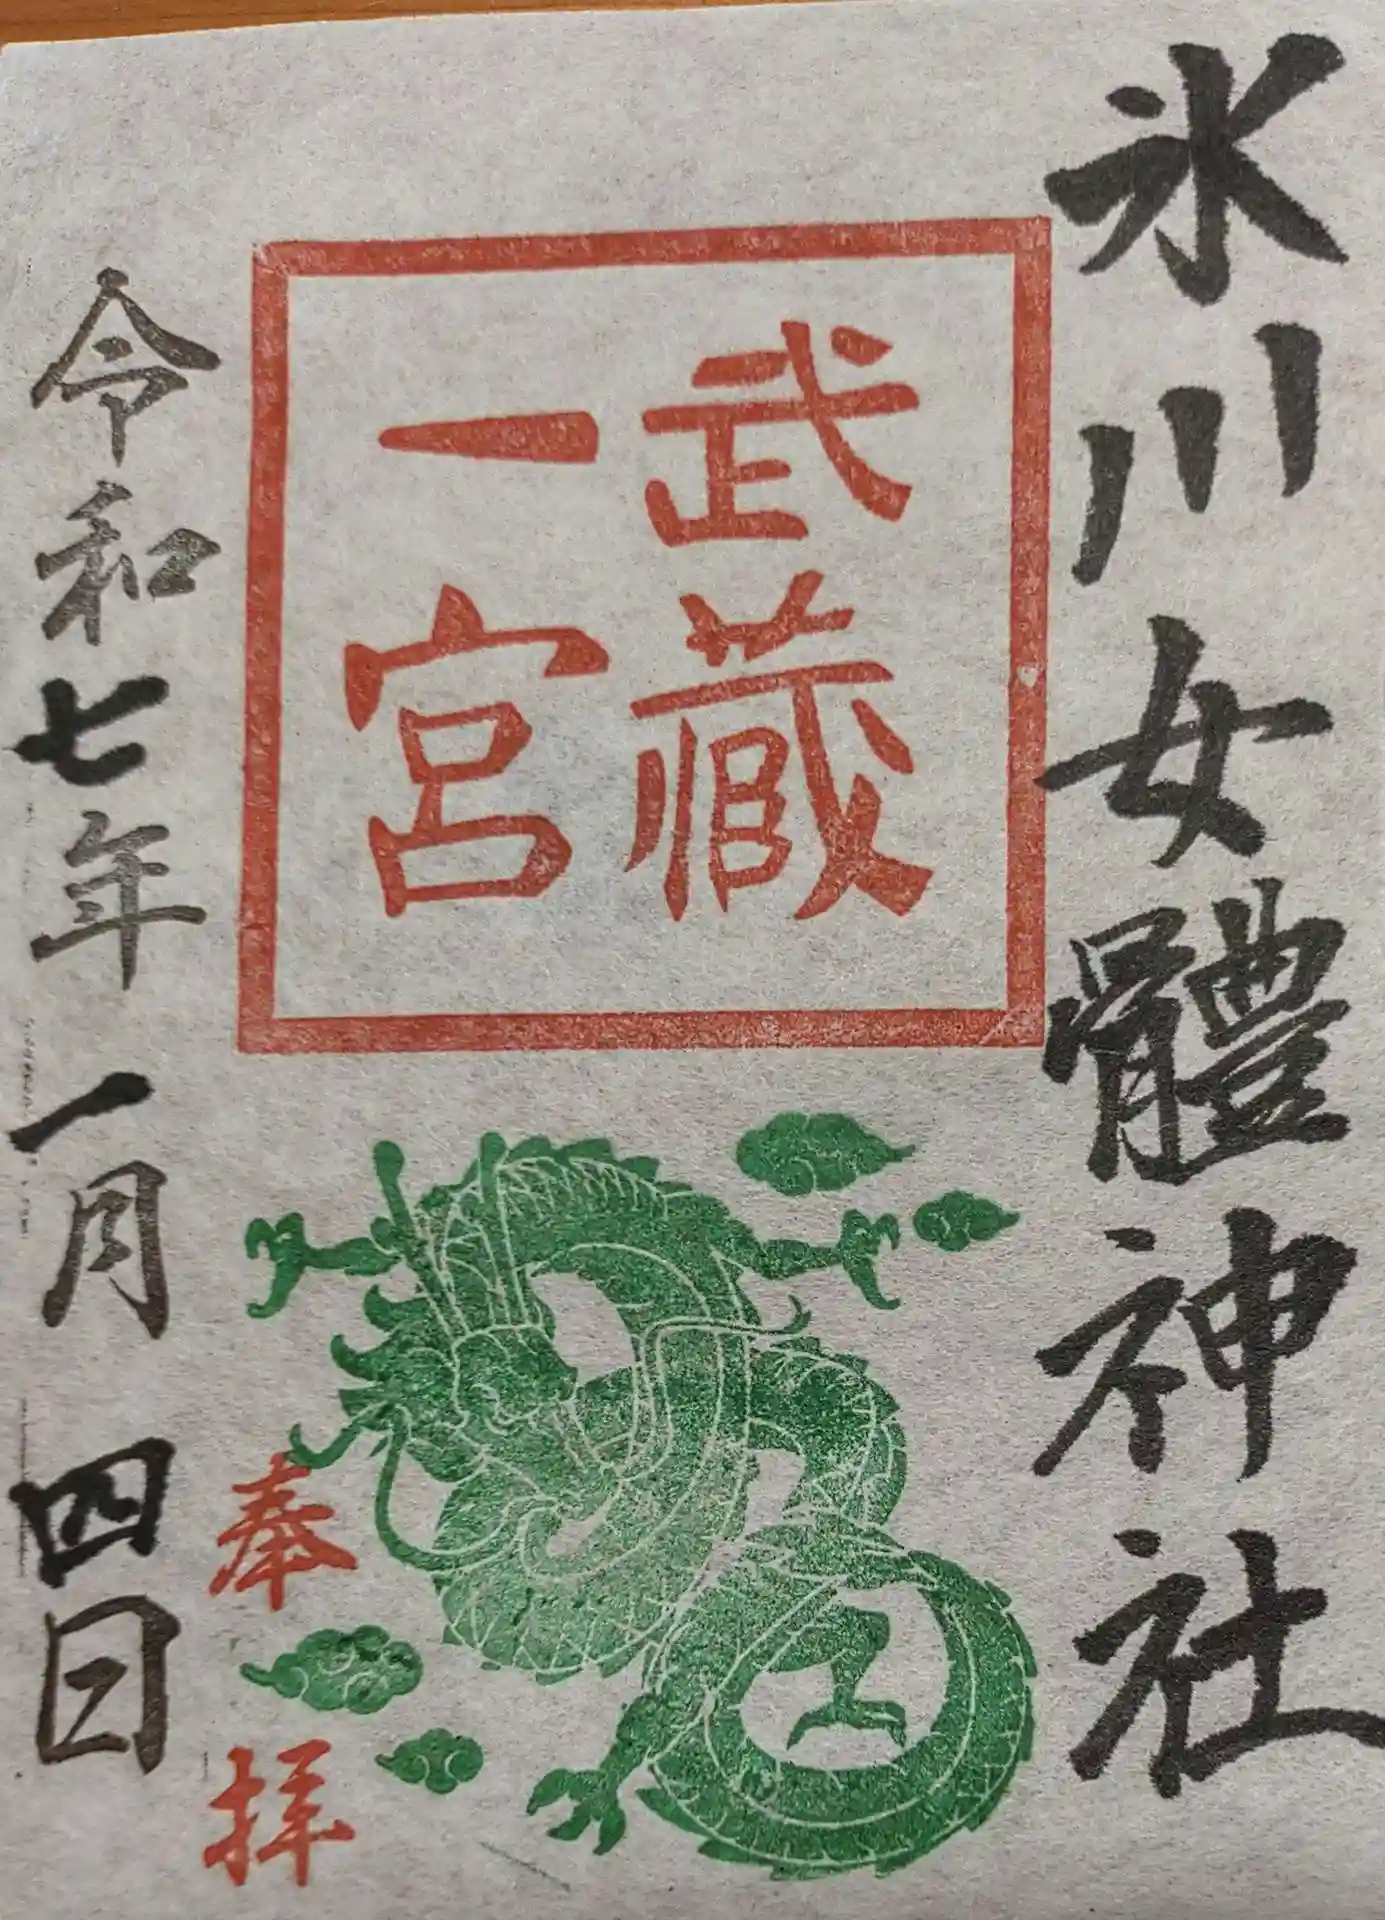 氷川女體神社
武蔵
一宮
奉拝
令和七年一月四日